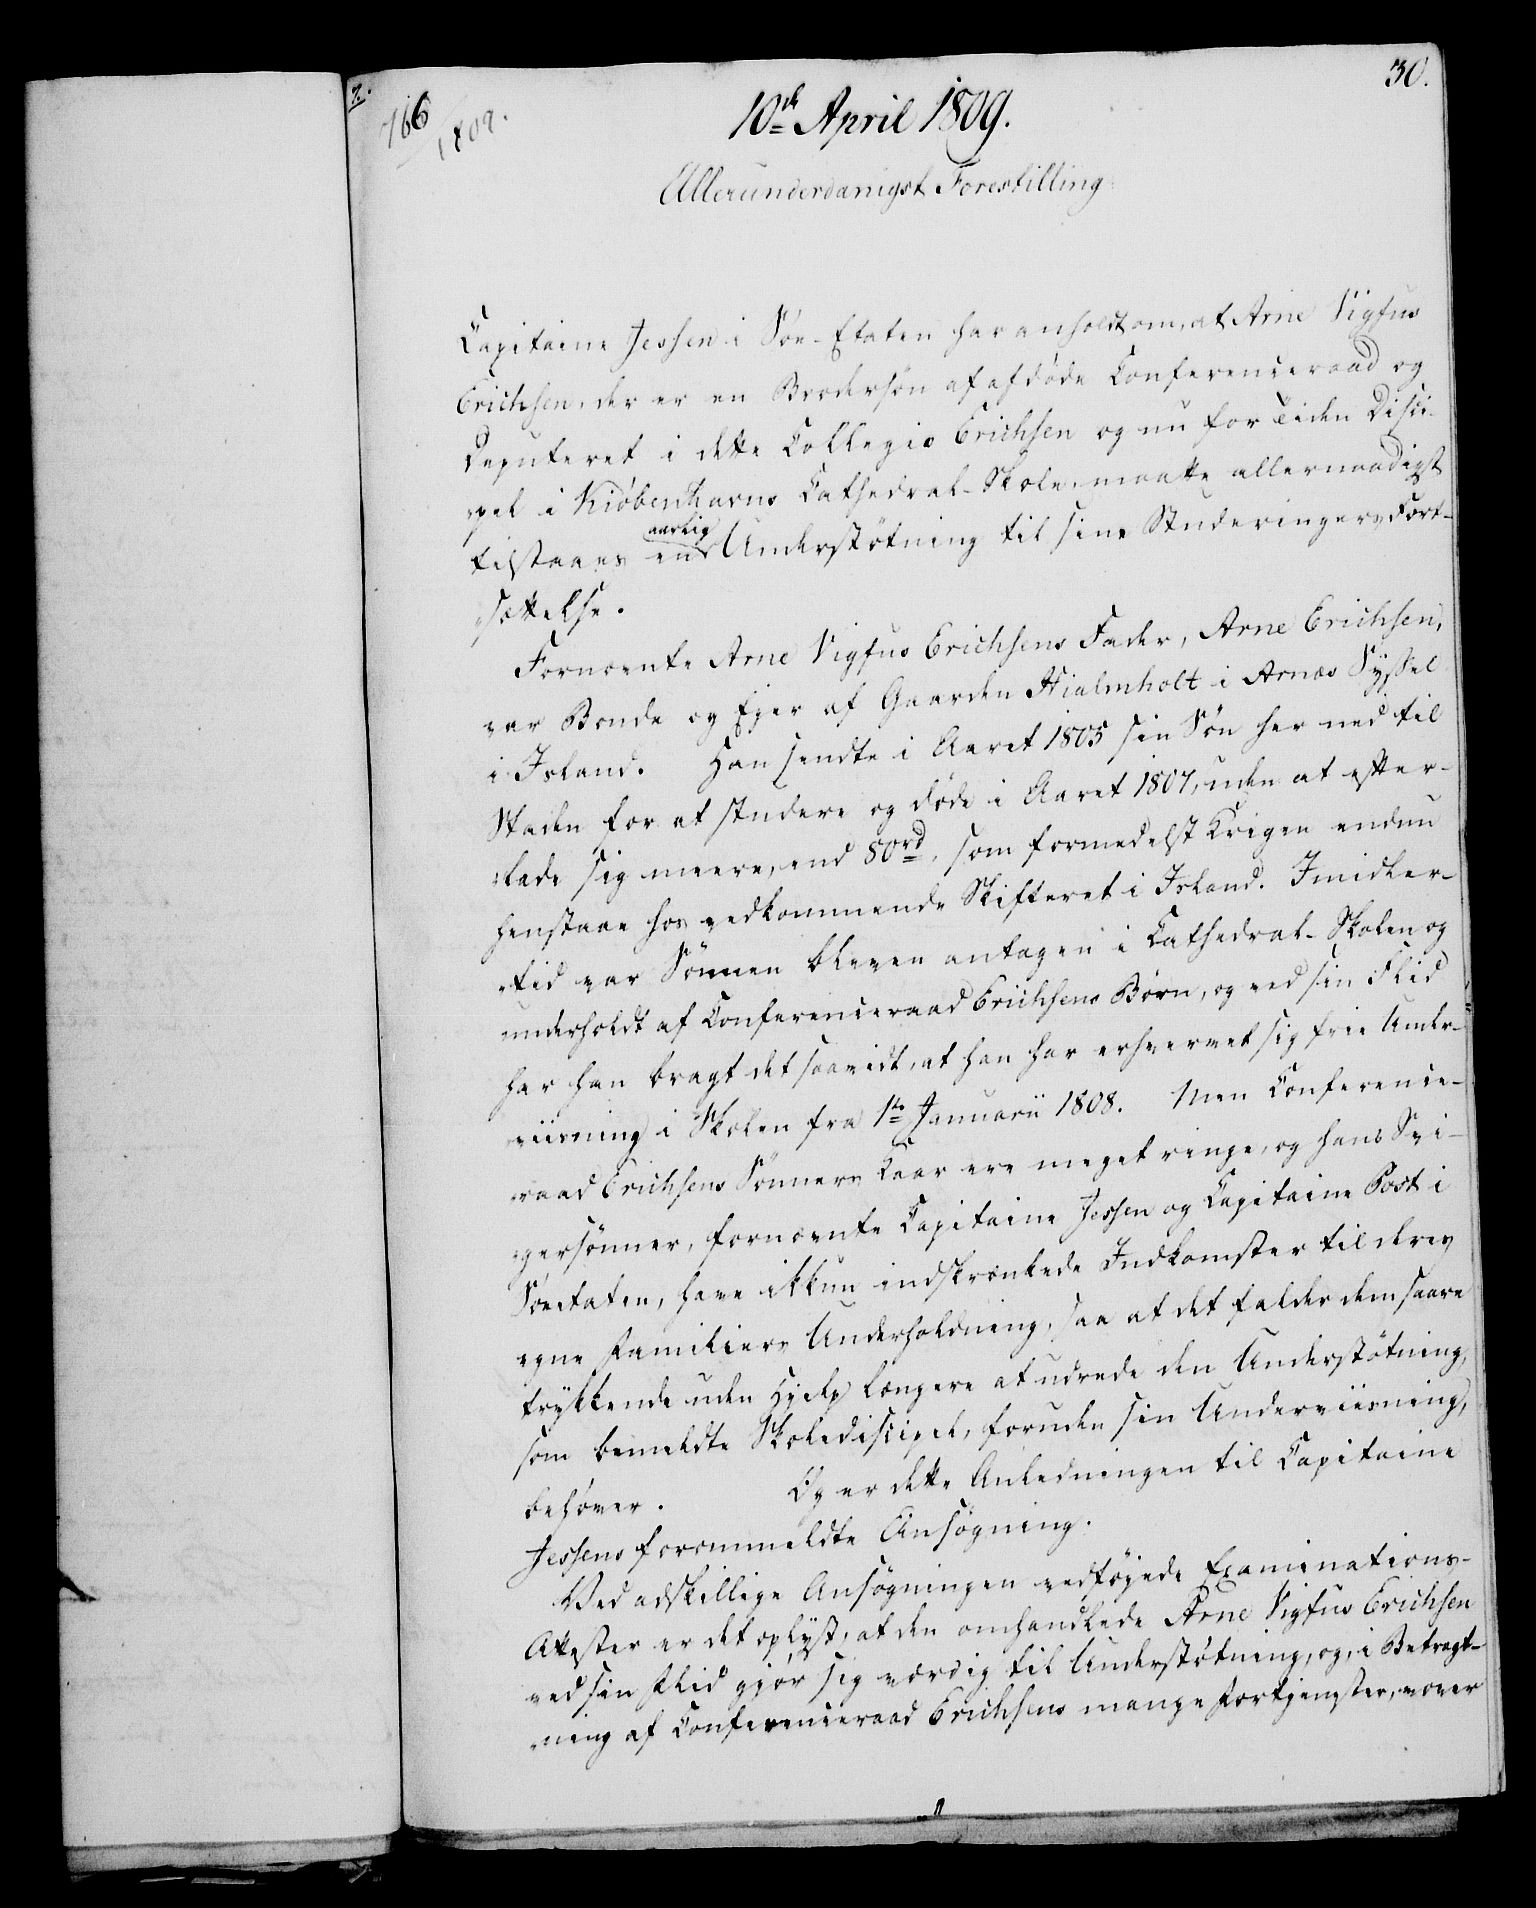 7.
30.
766
1809.
10de April 1809.
Allerunderdanigst Forestilling
Capitaine Jessen i Söe-Etaten har anholdt om, at Arne Vigfus
Erichsen, der er en Brodersön af afdöde Conferenceraad og
Deputeret i dette Collegio Erichsen og nu for Tiden Disci-
pel i Kiöbenhavns Cathedral-Skole, maatte allernaadigst
aarlig
tilstaaes en Understötning til sine Studeringers Fort-
sættelse.
Fornævnte Arne Vigfus Erichsens Fader, Arne Erichsen,
var Bonde og Eger af Gaarden Hialmholt i Arnæs Syssel
i Island. Han sendte i Aaret 1805 sin Sön her ned til
Staden for at studere og döde i Aaret 1807, uden at efter-
lade sig meere, end 80 rd, som formedelst Krigen endnu
henstaae hos vedkommende Skifteret i Island. Imidler-
tid var Sönnen bleven antagen i Cathedral-Skolen og
underholdt af Conferenceraad Erichsens Börn, og ved sin Flid
har han bragt det saavidt, at han har erhvervet sig frie Under-
viisning i Skolen fra 1te Januarii 1808. Men Conference-
raad Erichsens Sönners Kaar ere meget ringe, og hans Svi-
gersönner, fornævnte Capitaine Jessen og Capitaine Post i
Söeetaten, have ikkun indskrænkede Indkomster til deres
egne Familiers Underholdning, saa at det falder dem saare
trykkende uden Hjelp længere at udrede den Understötning,
som bemeldte Skolediscipel, foruden sin Underviisning,
behöver. Og er dette Anledningen til Capitaine
Jessens forommeldte Ansögning.
Ved adskillige Ansögningen vedföjede Examinations-
Attester er det oplyst, at den omhandlede Arne Vigfus Erichsen
ved sin Flid gjör sig værdig til Understötning, og, i Betragt-
ning af Conferenceraad Erichsens mange Fortjenester, vover